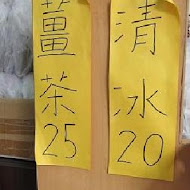 薑茶25
清冰20